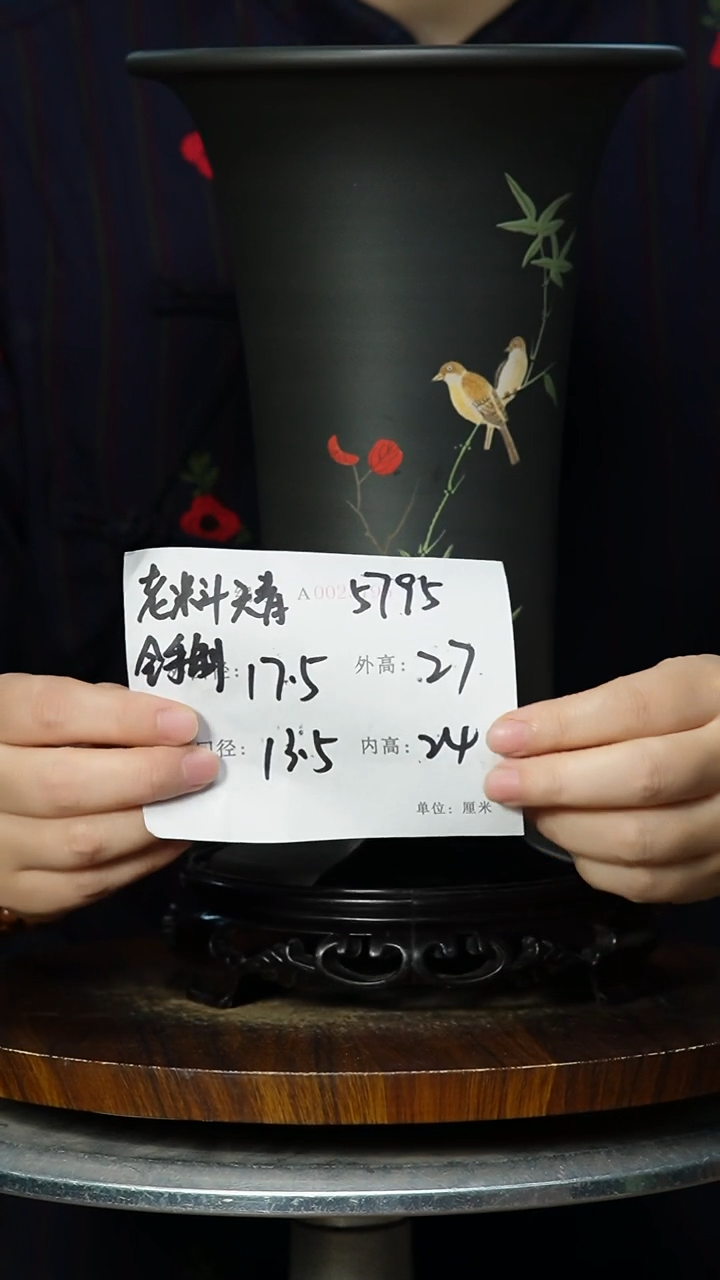 老米斗天青 A002 5795
全手制 径: 17.5 外高: 27
口径: 13.5 内高: 24
单位: 厘米